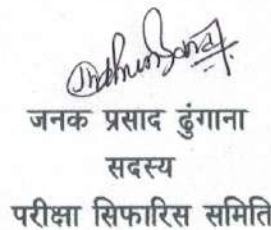 जनक प्रसाद ढुंगाना
सदस्य
परीक्षा सिफारिस समिति